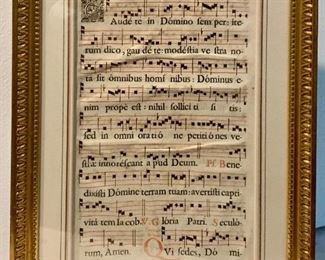 Gaude te in Dómino sem per: ite
rum dico, gau de te modestia ve stra no
ta sit ómnibus homí nibus: Dóminus e
nim propè est: nihil sollíci ti si tis:
sed in omni oratió ne petitió nes ve
stræ innotescant a pud Deum. Ps. Bene
dixisti Dómine terram tuam: avertisti capti
vitá tem Iacob. V. G lória Patri. Sæculó
rum, Amen. Q Vi sedes, Dó mi